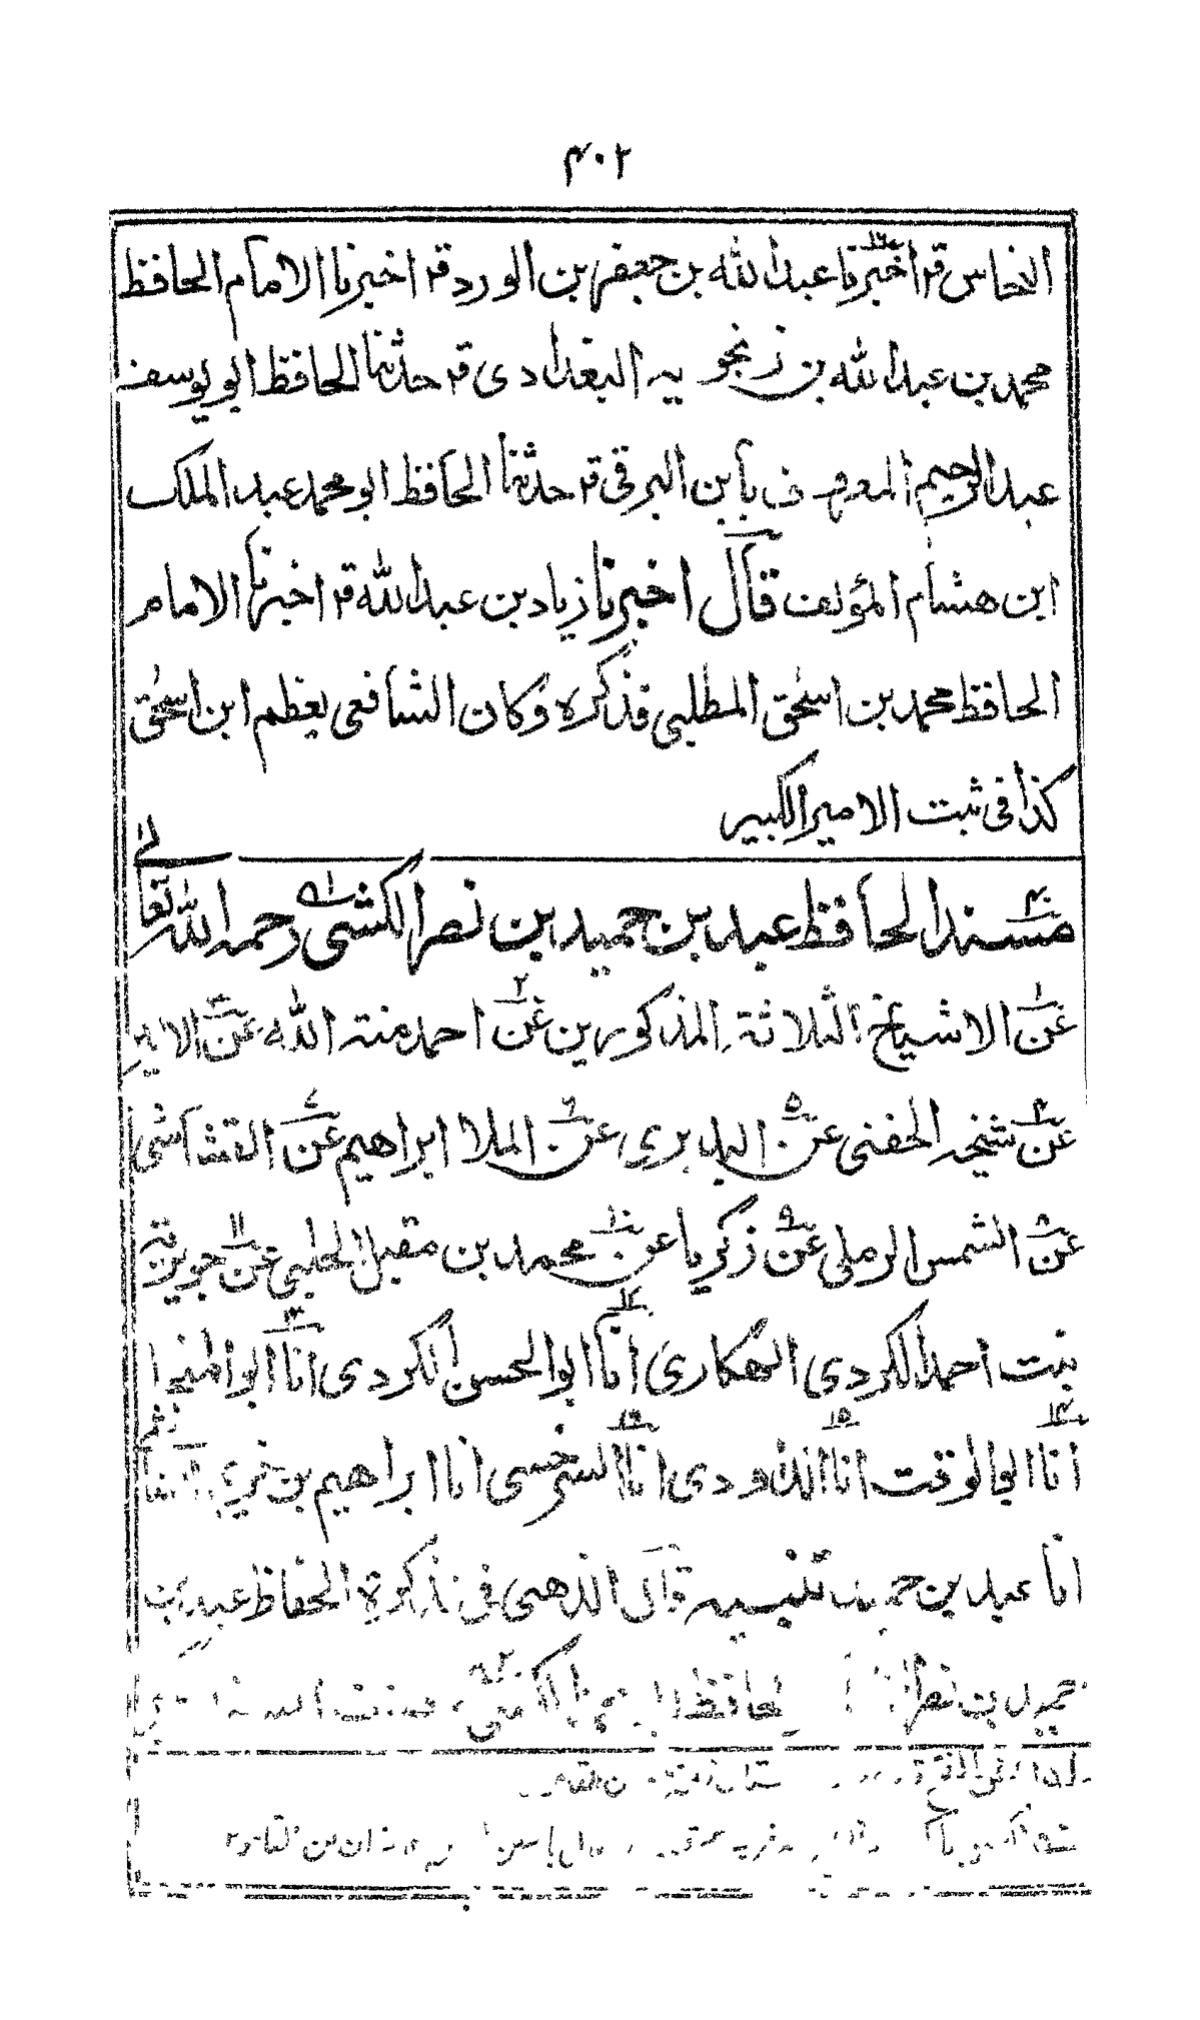 ۴۰۲
النحاس قال اخبرنا عبد الله بن جعفر بن الورد قال اخبرنا الامام الحافظ
محمد بن عبد الله بن زنجويه البغدادى قال حدثنا الحافظ ابو يوسف
عبد الرحيم المعروف بابن البرقى قال حدثنا الحافظ ابو محمد عبد الملك
ابن هشام المؤلف قال اخبرنا زياد بن عبد الله قال اخبرنا الامام
الحافظ محمد بن اسحٰق المطلبى فذكره وكان الشافعى يعظم ابن اسحٰق
كذا فى ثبت الامير الكبير
مسند الحافظ عبد بن حميد بن نصر الكشى رحمه الله تعالى
عن الاشياخ الثلاثة المذكورين عن احمد منة الله عن الامير
عن شيخه الحفنى عن البديرى عن الملا ابراهيم عن القشاشى
عن الشمس الرملى عن زكريا عن محمد بن مقبل الحلبى عن جويرية
بنت احمد الكردى الهكارى انا ابو الحسن الكردى انا ابو المنجا
انا ابو الوقت انا الداودى انا السرخسى انا ابراهيم بن خزيم
انا عبد بن حميد تنبيه قال الذهبى فى تذكرة الحفاظ عبد بن
حميد بن نصر الحافظ